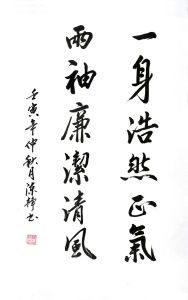 一身浩然正氣
兩袖廉潔清風
壬寅年仲秋月陳靜書